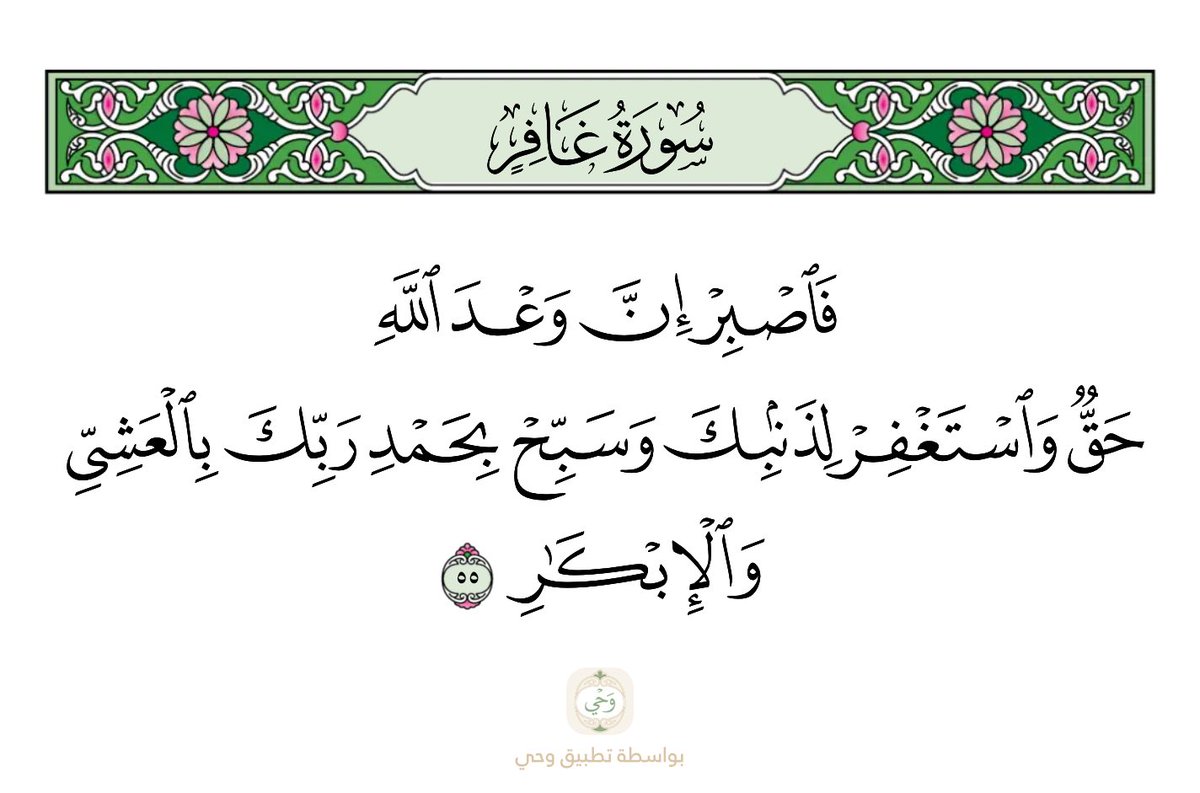 سُورَةُ غَافِرٍ
فَٱصْبِرْ إِنَّ وَعْدَ ٱللَّهِ
حَقٌّ وَٱسْتَغْفِرْ لِذَنۢبِكَ وَسَبِّحْ بِحَمْدِ رَبِّكَ بِٱلْعَشِىِّ
وَٱلْإِبْكَـٰرِ ٥٥
وَحْي
بواسطة تطبيق وحي